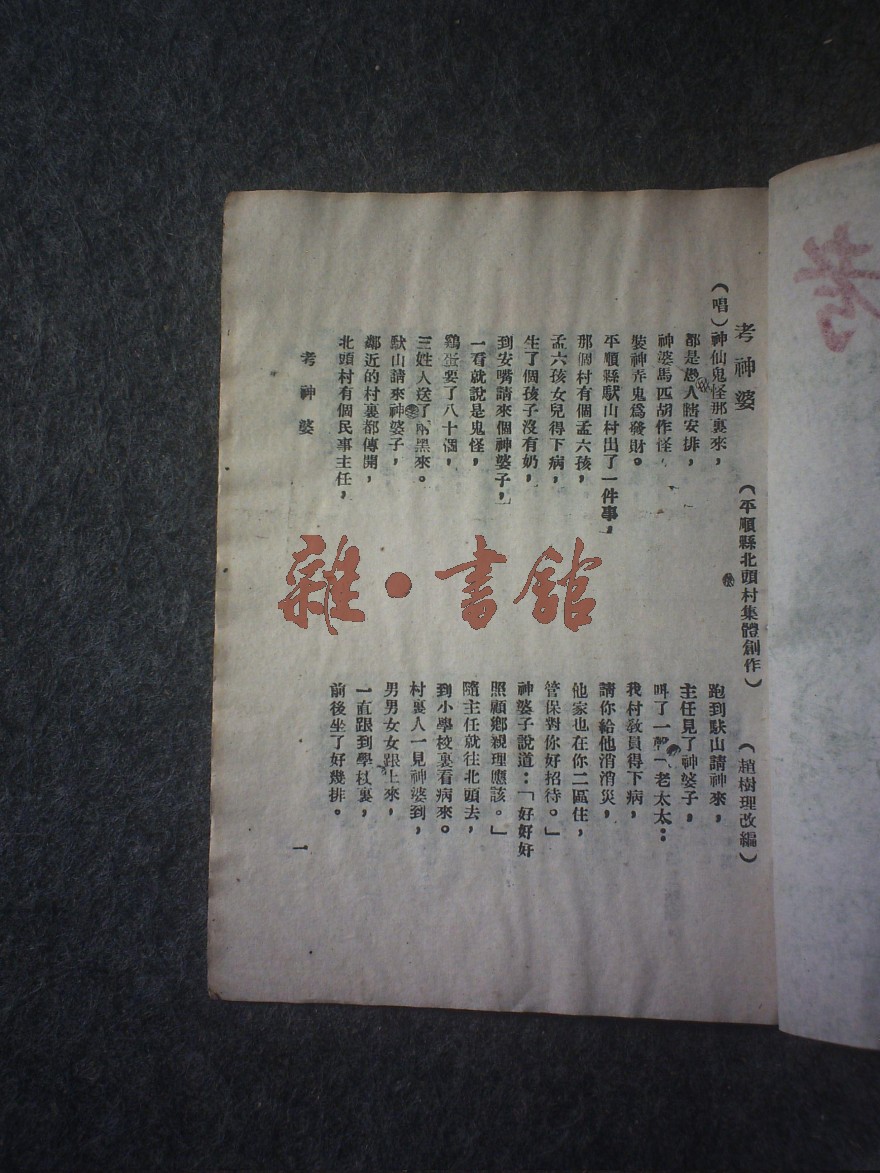 考神婆
（平順縣北頭村集體創作）
（趙樹理改編）
（唱）神仙鬼怪那裏來，
都是愚人瞎安排，
神婆馬匹胡作怪，
裝神弄鬼爲發財。
平順縣馱山村出了一件事，
那個村有個孟六孩，
孟六孩女兒得下病，
生了個孩子沒有奶，
到安嘴請來個神婆子，
一看就說是鬼怪，
鷄蛋要了八十個，
三姓人送了兩黑來。
馱山請來神婆子，
鄰近的村裏都傳開，
北頭村有個民事主任，
跑到馱山請神來，
主任見了神婆子，
叫了一聲「老太太：
我村教員得下病，
請你給他消消災，
他家也在你二區住，
管保對你好招待。」
神婆子說道：「好好好
照顧鄉親理應該。」
隨主任就往北頭去，
到小學校裏看病來。
村裏人一見神婆到，
男男女女跟上來，
一直跟到學校裏，
前後坐了好幾排。
考神婆
一
考
雜·書館